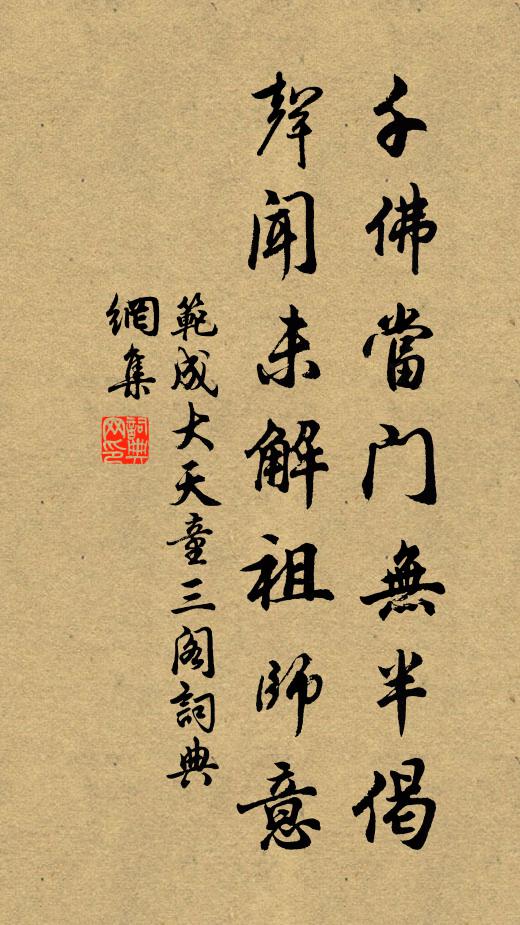 千佛當門無半偈
聲聞未解祖師意
範成大天童三閣詞典
網集
詞典
网印